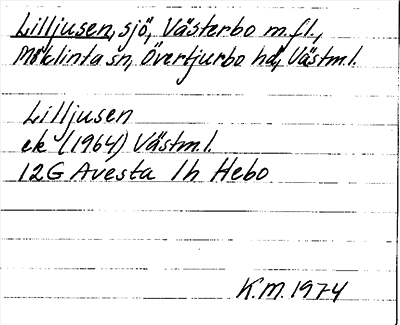 Lilljusen, sjö, Västerbo m.fl.,
Möklinta sn, Övertjurbo hd, Västml.
Lilljusen
ek (1964) Västml.
12G Avesta 1h Hebo
K.M. 1974